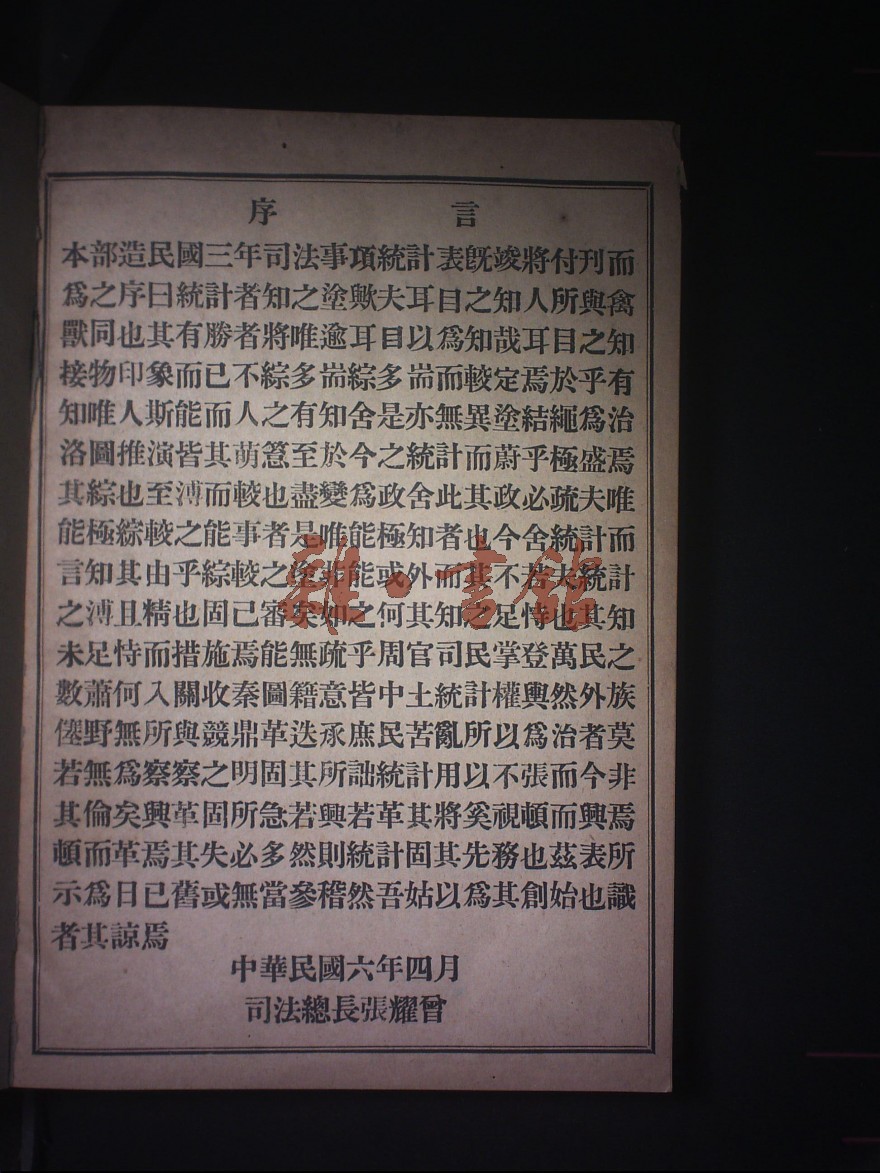 序言
本部造民國三年司法事項統計表旣竣將付刊而
爲之序曰統計者知之塗歟夫耳目之知人所與禽
獸同也其有勝者將唯逾耳目以爲知哉耳目之知
接物印象而已不綜多耑綜多耑而較定焉於乎有
知唯人斯能而人之有知舍是亦無異塗結繩爲治
洛圖推演皆其萌至於今之統計而蔚乎極盛焉
其綜也至溥而較也盡變爲政舍此其政必疏夫唯
能極綜較之能事者是唯能極知者也今舍統計而
言知其由乎綜較之塗非能或外而其不若夫統計
之溥且精也固已審矣如之何其知之足恃也其知
未足恃而措施焉能無疏乎周官司民掌登萬民之
數蕭何入關收秦圖籍意皆中土統計權輿然外族
僿野無所與競鼎革迭承庶民苦亂所以爲治者莫
若無爲察察之明固其所詘統計用以不張而今非
其倫矣興革固所急若興若革其將奚視頓而興焉
頓而革焉其失必多然則統計固其先務也茲表所
示爲日已舊或無當參稽然吾姑以爲其創始也識
者其諒焉
中華民國六年四月
司法總長張耀曾
雜·書館